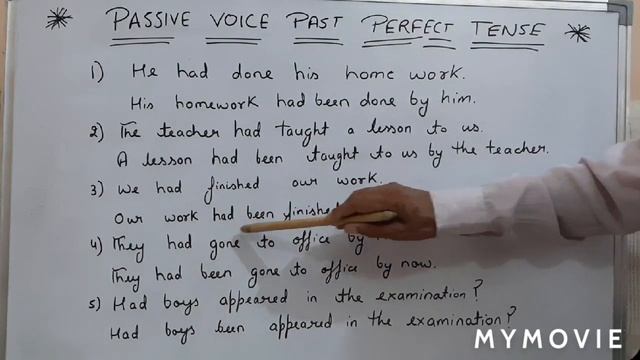 * PASSIVE VOICE PAST PERFECT TENSE *
1) He had done his home work.
His homework had been done by him.
2) The teacher had taught a lesson to us.
A lesson had been taught to us by the teacher.
3) We had finished our work.
Our work had been finished
4) They had gone to office by
They had been gone to office by now.
5) Had boys appeared in the examination?
Had boys been appeared in the examination?
MYMOVIE